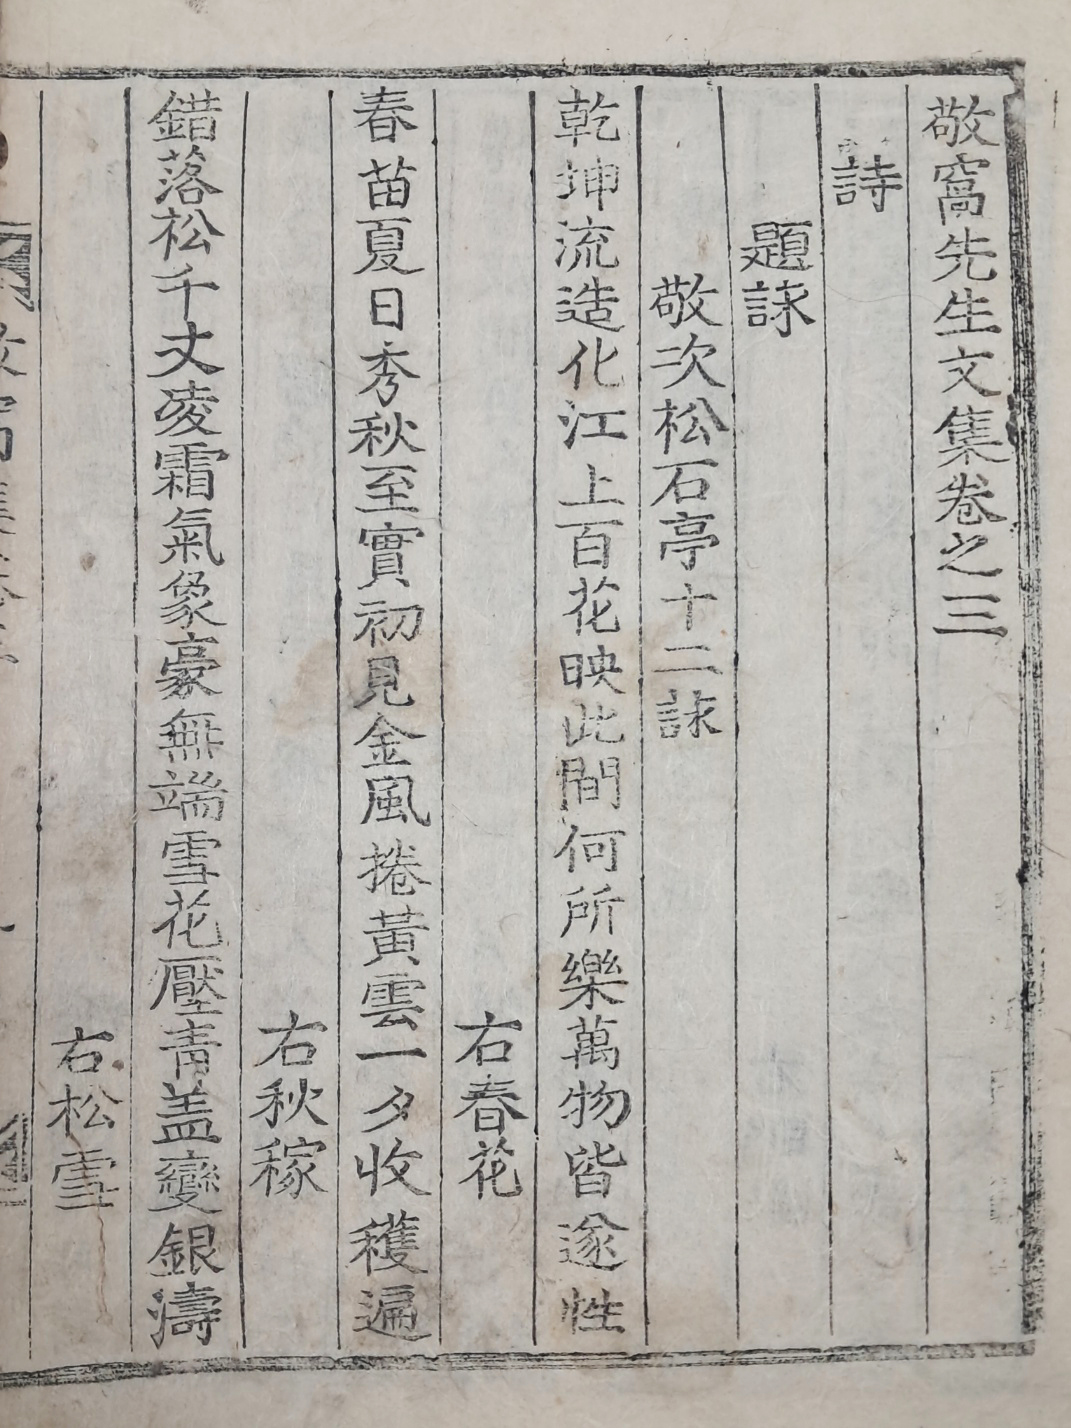 敬窩先生文集卷之三
詩
題詠
敬次松石亭十二詠
乾坤流造化江上百花映此間何所樂萬物皆遂性
右春花
春苗夏日秀秋至實初見金風捲黃雲一夕收穫遍
右秋稼
錯落松千丈凌霜氣象豪無端雪花壓靑盖變銀濤
右松雪